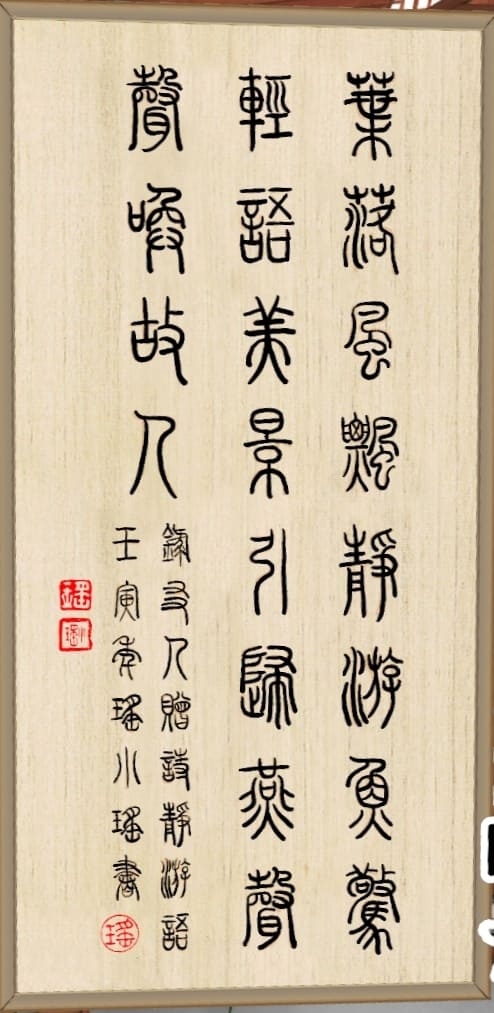 葉落風飄靜游魚驚
輕語美景引歸燕聲
聲喚故人
錄友人贈詩靜游語
壬寅年瑤小瑤書